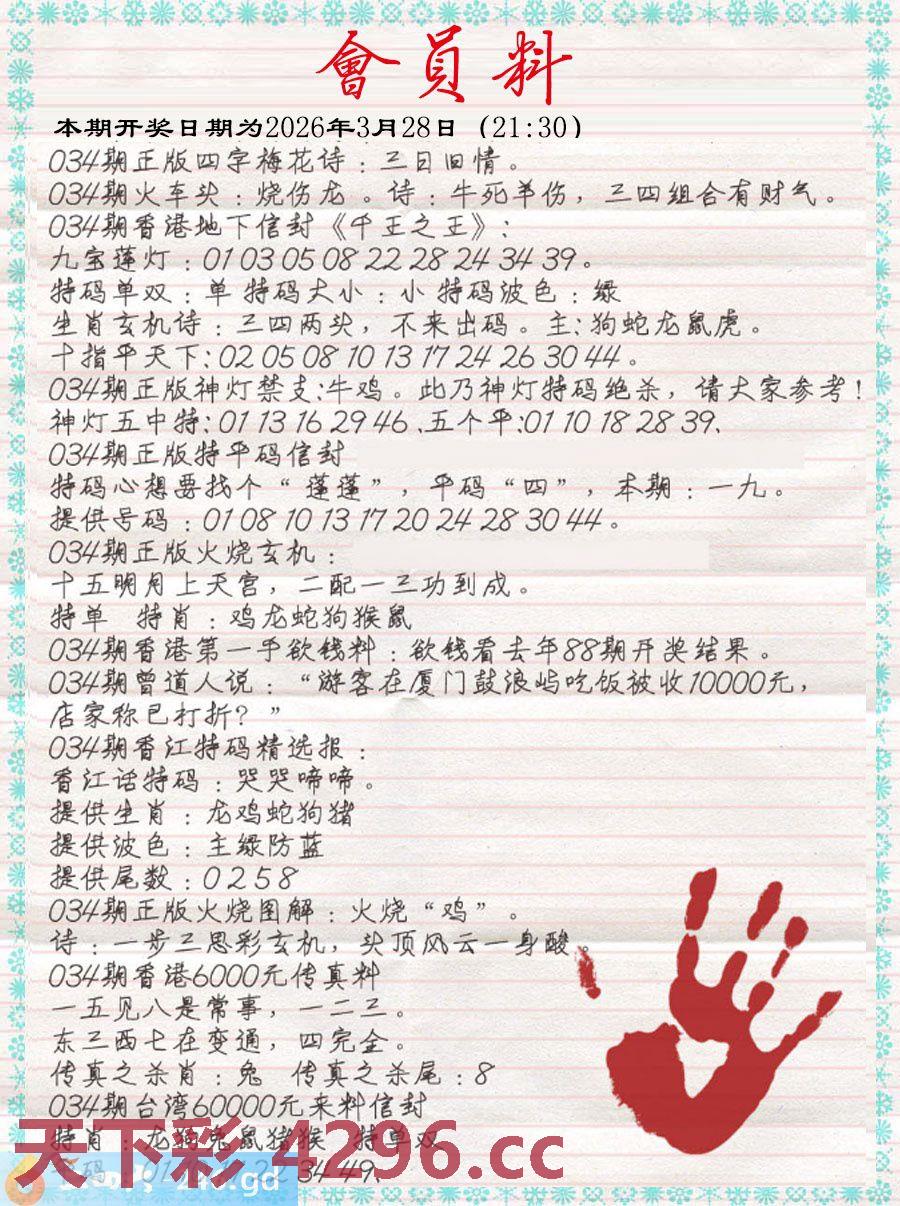 會員料
本期开奖日期为2026年3月28日（21:30）
034期正版四字梅花诗：三日旧情。
034期火车头：烧伤龙 。诗：牛死羊伤，三四组合有财气。
034期香港地下信封《千王之王》:
九宝莲灯：01 03 05 08 22 28 24 34 39。
特码单双：单 特码大小：小 特码波色：绿
生肖玄机诗：三四两头，不来出码。主:狗蛇龙鼠虎。
十指平天下:02 05 08 10 13 17 24 26 30 44。
034期正版神灯禁支:牛鸡。此乃神灯特码绝杀，请大家参考！
神灯五中特:01 13 16 29 46、五个平:01 10 18 28 39、
034期正版特平码信封
特码心想要找个“ 蓬蓬”，平码“四”，本期：一九。
提供号码：01 08 10 13 17 20 24 28 30 44。
034期正版火烧玄机：
十五明月上天宫，二配一三功到成。
特单 特肖：鸡龙蛇狗猴鼠
034期香港第一手欲钱料：欲钱看去年88期开奖结果。
034期曾道人说：“游客在厦门鼓浪屿吃饭被收10000元，
店家称已打折？”
034期香江特码精选报：
香江话特码：哭哭啼啼。
提供生肖：龙鸡蛇狗猪
提供波色：主绿防蓝
提供尾数：0 2 5 8
034期正版火烧图解：火烧“鸡”。
诗：一步三思彩玄机，头顶风云一身酸。
034期香港6000元传真料
一五见八是常事，一二三。
东三西七在变通，四完全。
传真之杀肖：兔 传真之杀尾：8
034期台湾60000元来料信封
特肖：龙狗兔鼠猪猴 特单双
天下彩 4296.cc
34 49、
.gd